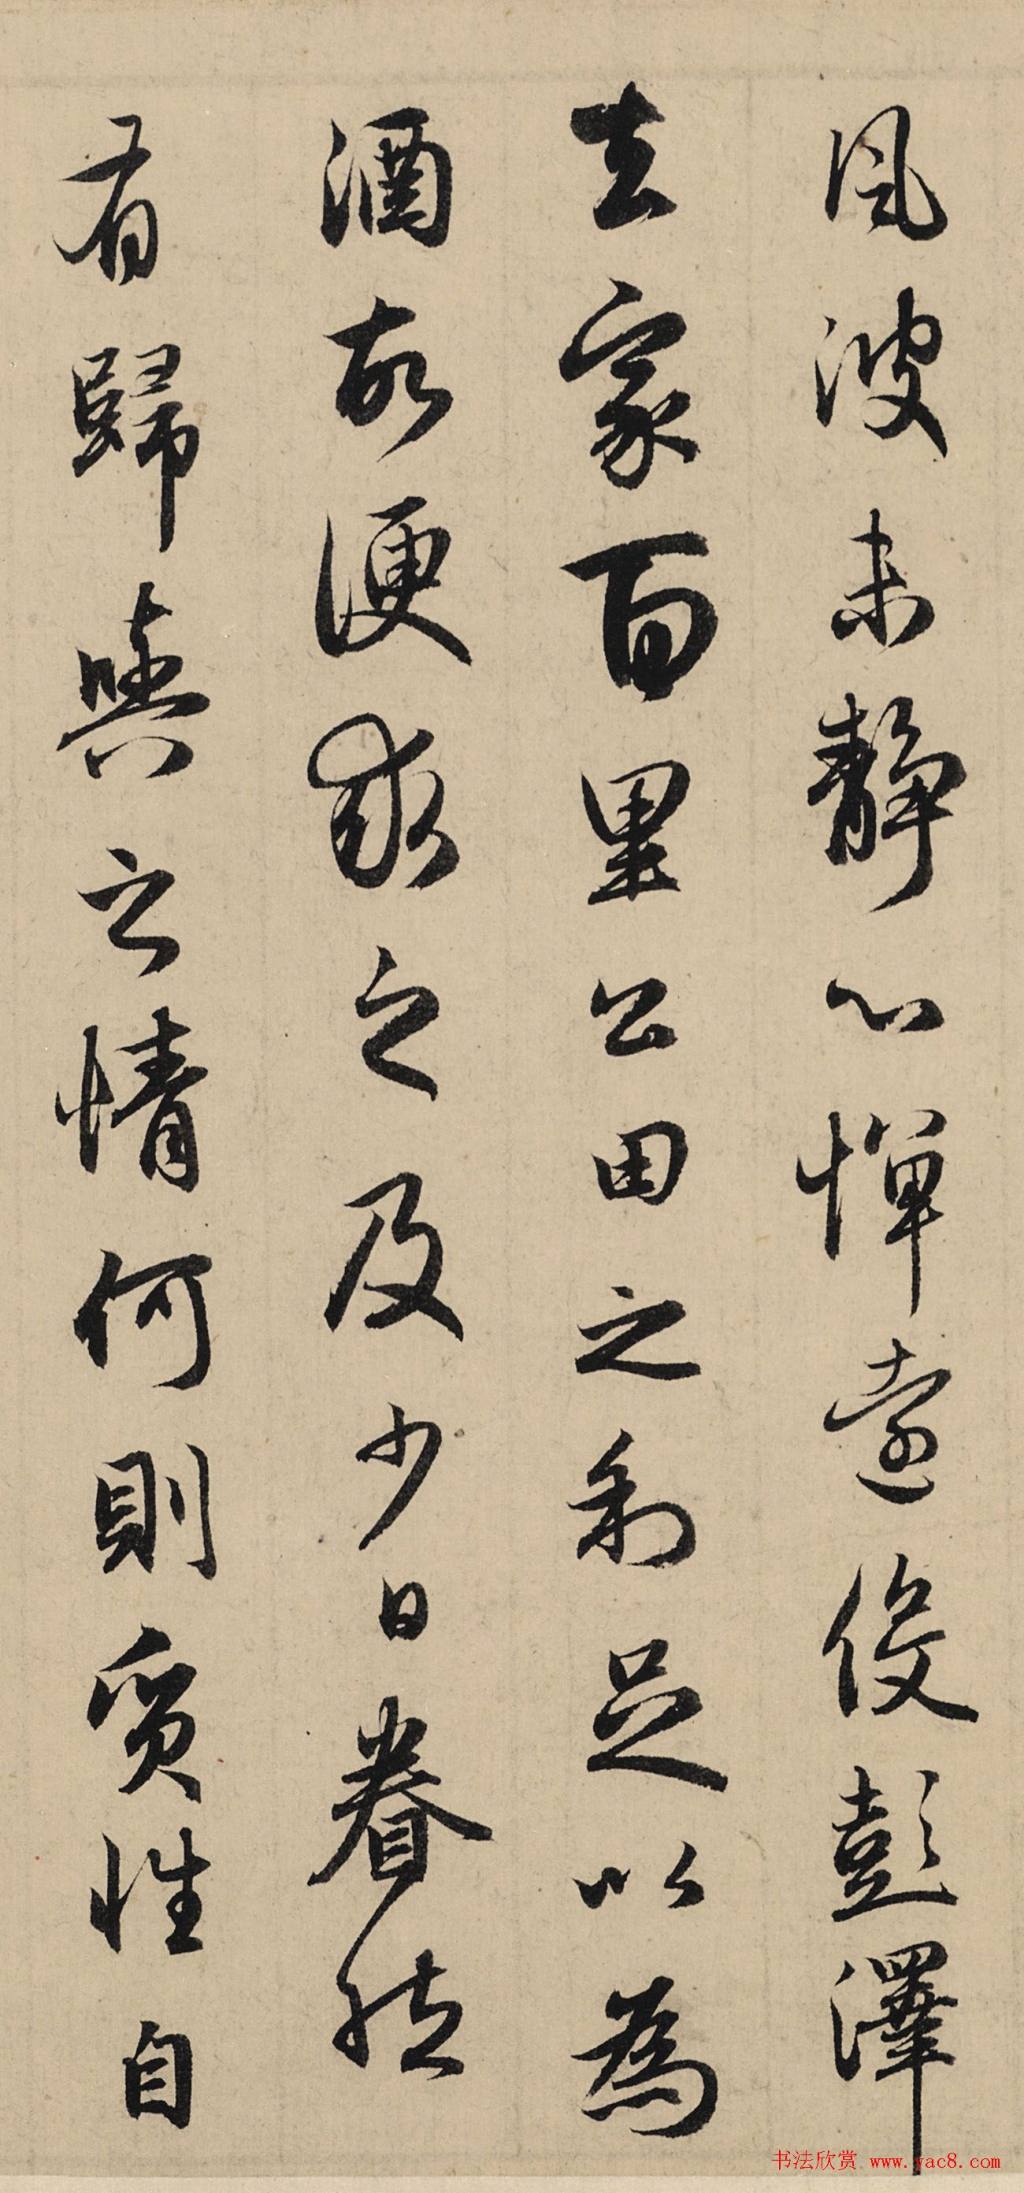 風波未静心憚遠役彭澤
去家百里公田之利足以為
酒故便求之及少日眷然
有歸與之情何則質性自
书法欣赏 www.yac8.com